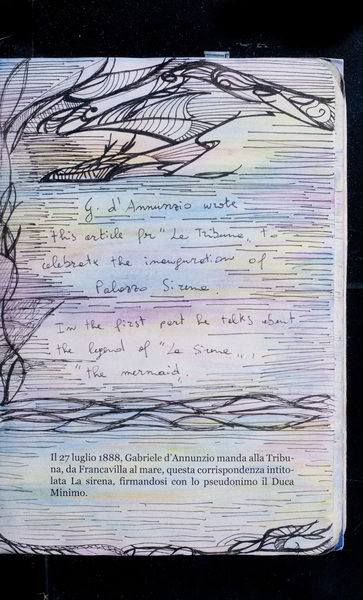 G. d'Annunzio wrote
this article for "La Tribuna" to
celebrate the inauguration of
Palazzo Sirena.
In the first part he talks about
the legend of "La Sirena",
"the mermaid".
Il 27 luglio 1888, Gabriele d'Annunzio manda alla Tribu-
na, da Francavilla al mare, questa corrispondenza intito-
lata La sirena, firmandosi con lo pseudonimo il Duca
Minimo.